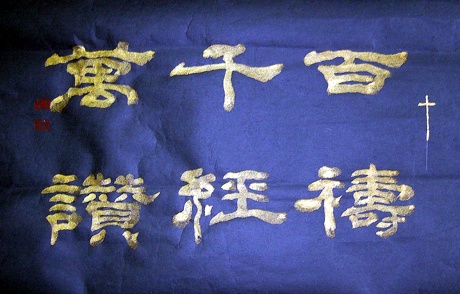 百禱
千經
萬讚